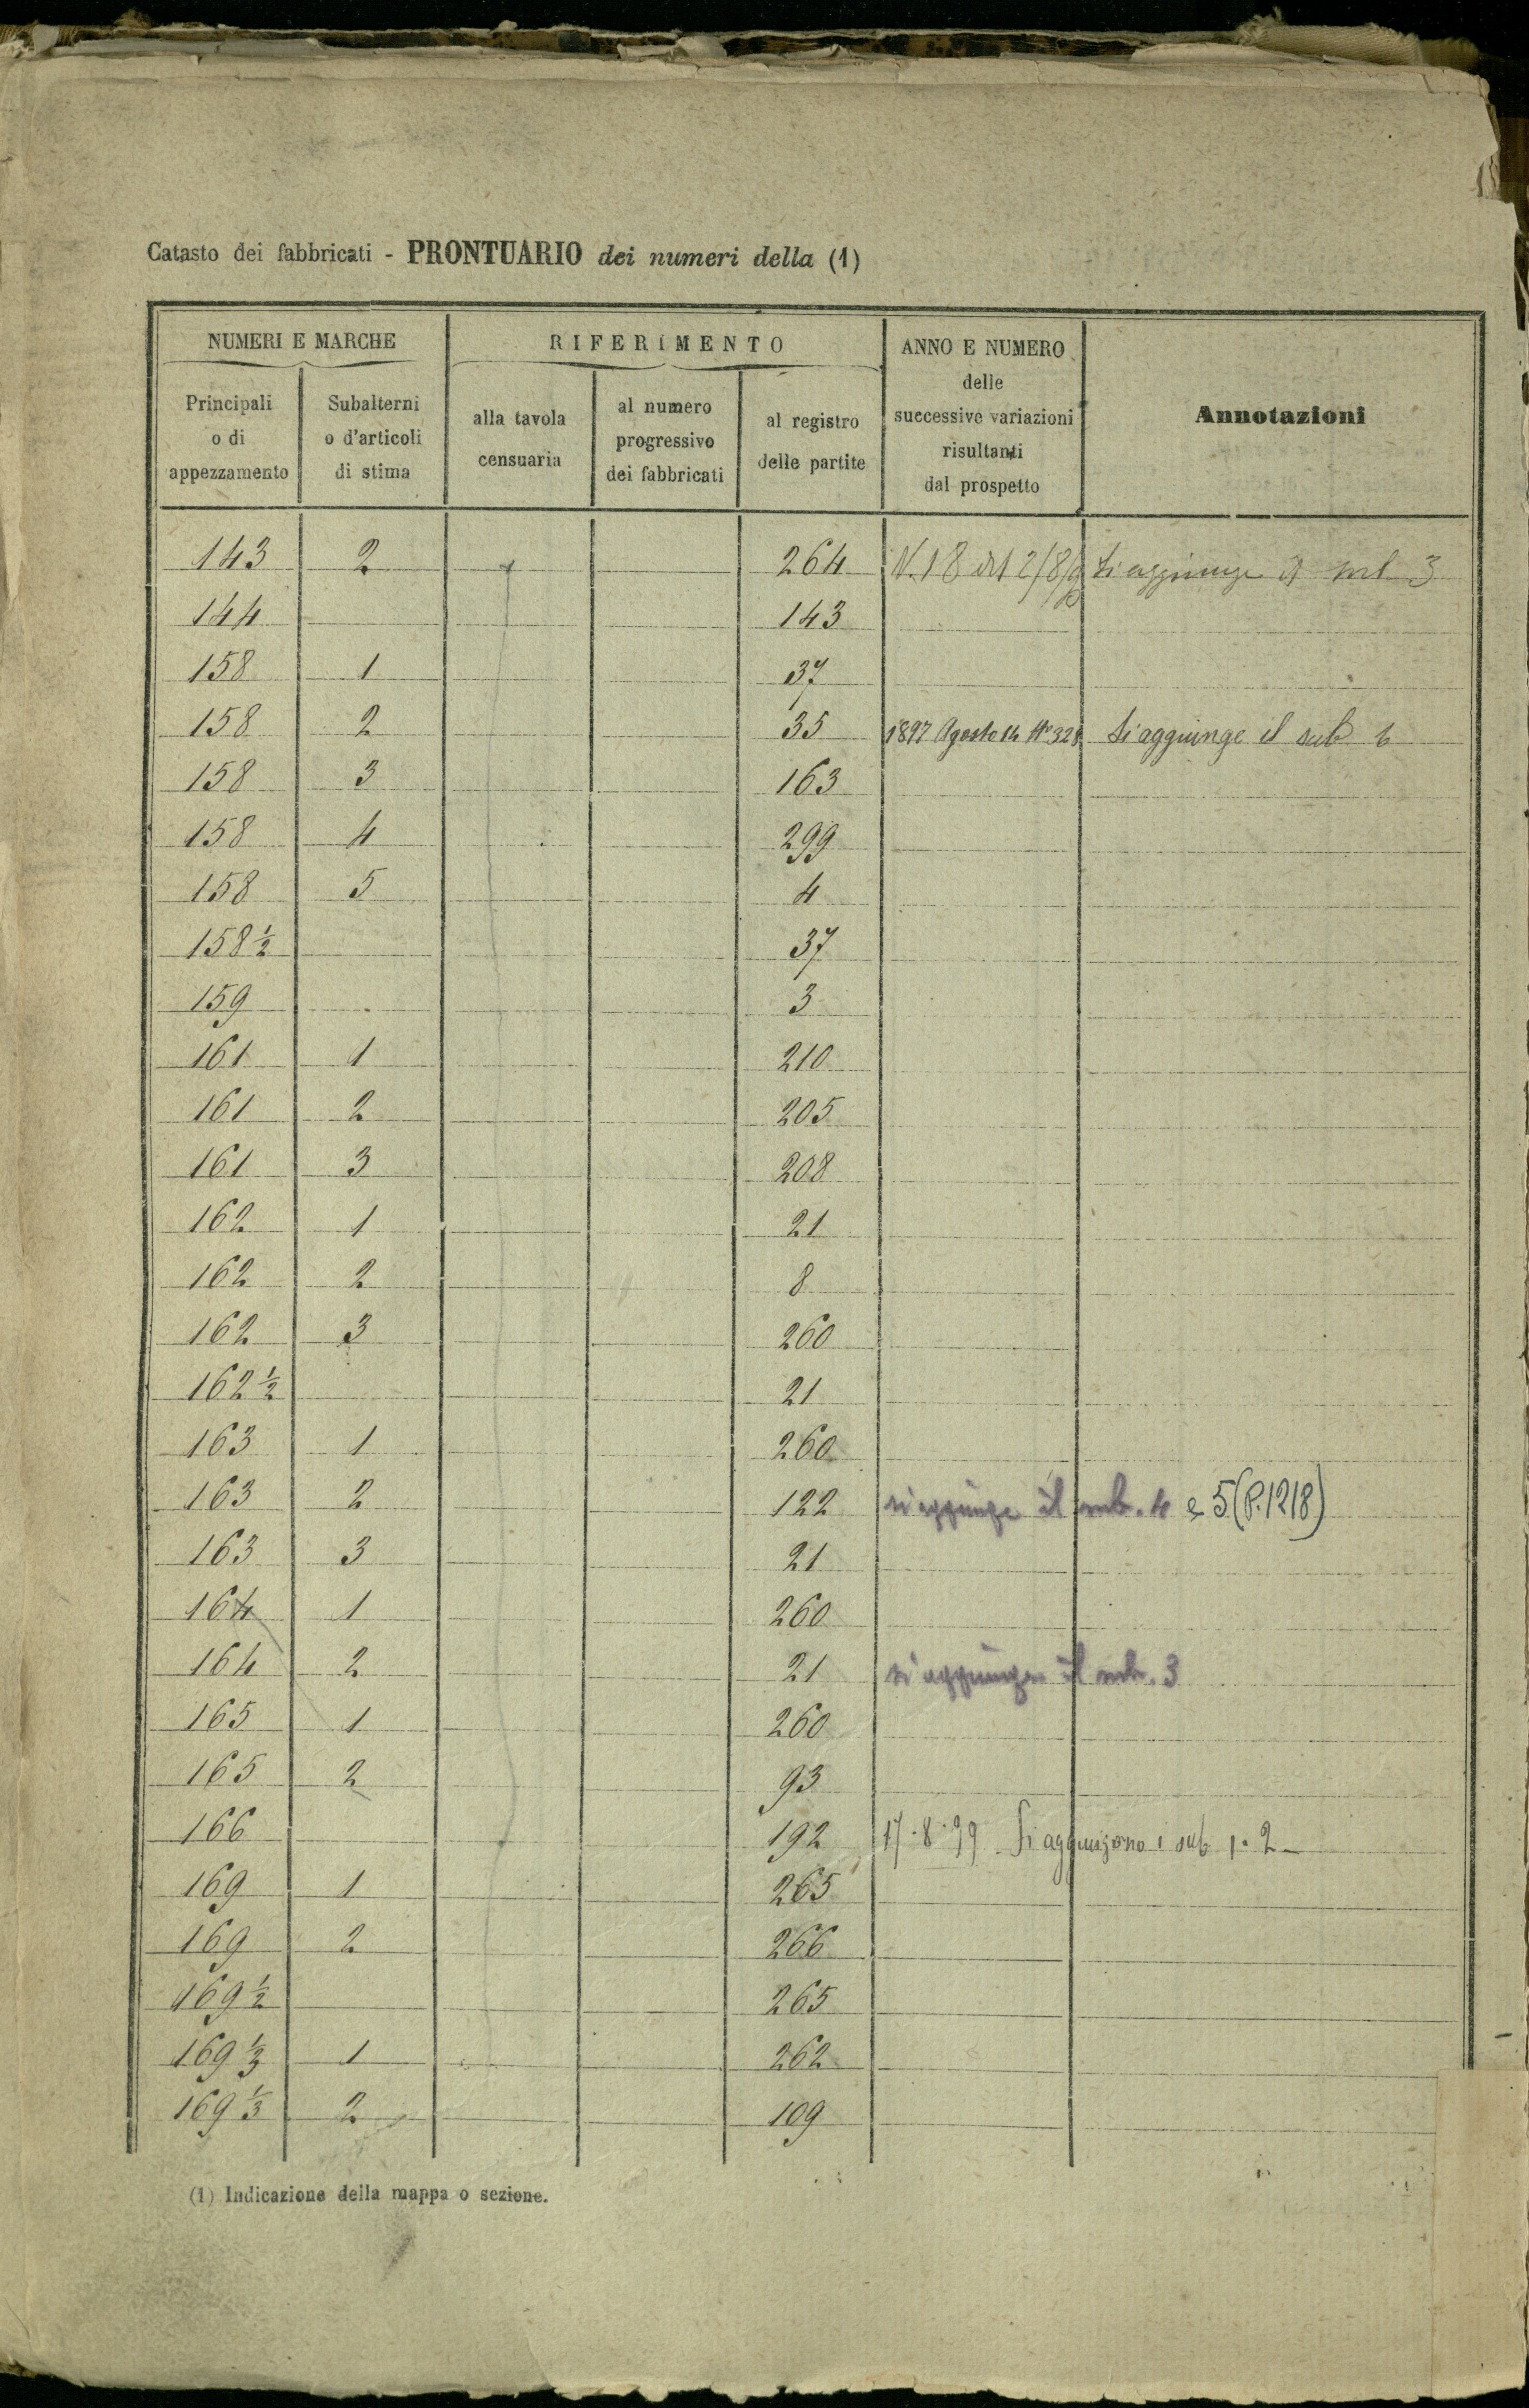 Catasto dei fabbricati - PRONTUARIO dei numeri della (1)
NUMERI E MARCHE
RIFERIMENTO
ANNO E NUMERO
delle
successive variazioni
risultanti
dal prospetto
Annotazioni
Principali
o di
appezzamento
Subalterni
o d'articoli
di stima
alla tavola
censuaria
al numero
progressivo
dei fabbricati
al registro
delle partite
143 2 264 N. 18 Si aggiunge il sub 3
144 143
158 1 37
158 2 35 1897 Agosto 14 N° 328 Si aggiunge il sub 6
158 3 163
158 4 299
158 5 4
158 ½ 37
159 3
161 1 210
161 2 205
161 3 208
162 1 21
162 2 8
162 3 260
162 ½ 21
163 1 260
163 2 122 si aggiunge il sub. 4 e 5 (P. 1218)
163 3 21
164 1 260
164 2 21 si aggiunge il sub. 3
165 1 260
165 2 93
166 192 17.8.99 Si aggiungono i sub 1. 2 -
169 1 265
169 2 266
169 ½ 265
169 ⅓ 1 262
169 ⅓ 2 109
(1) Indicazione della mappa o sezione.